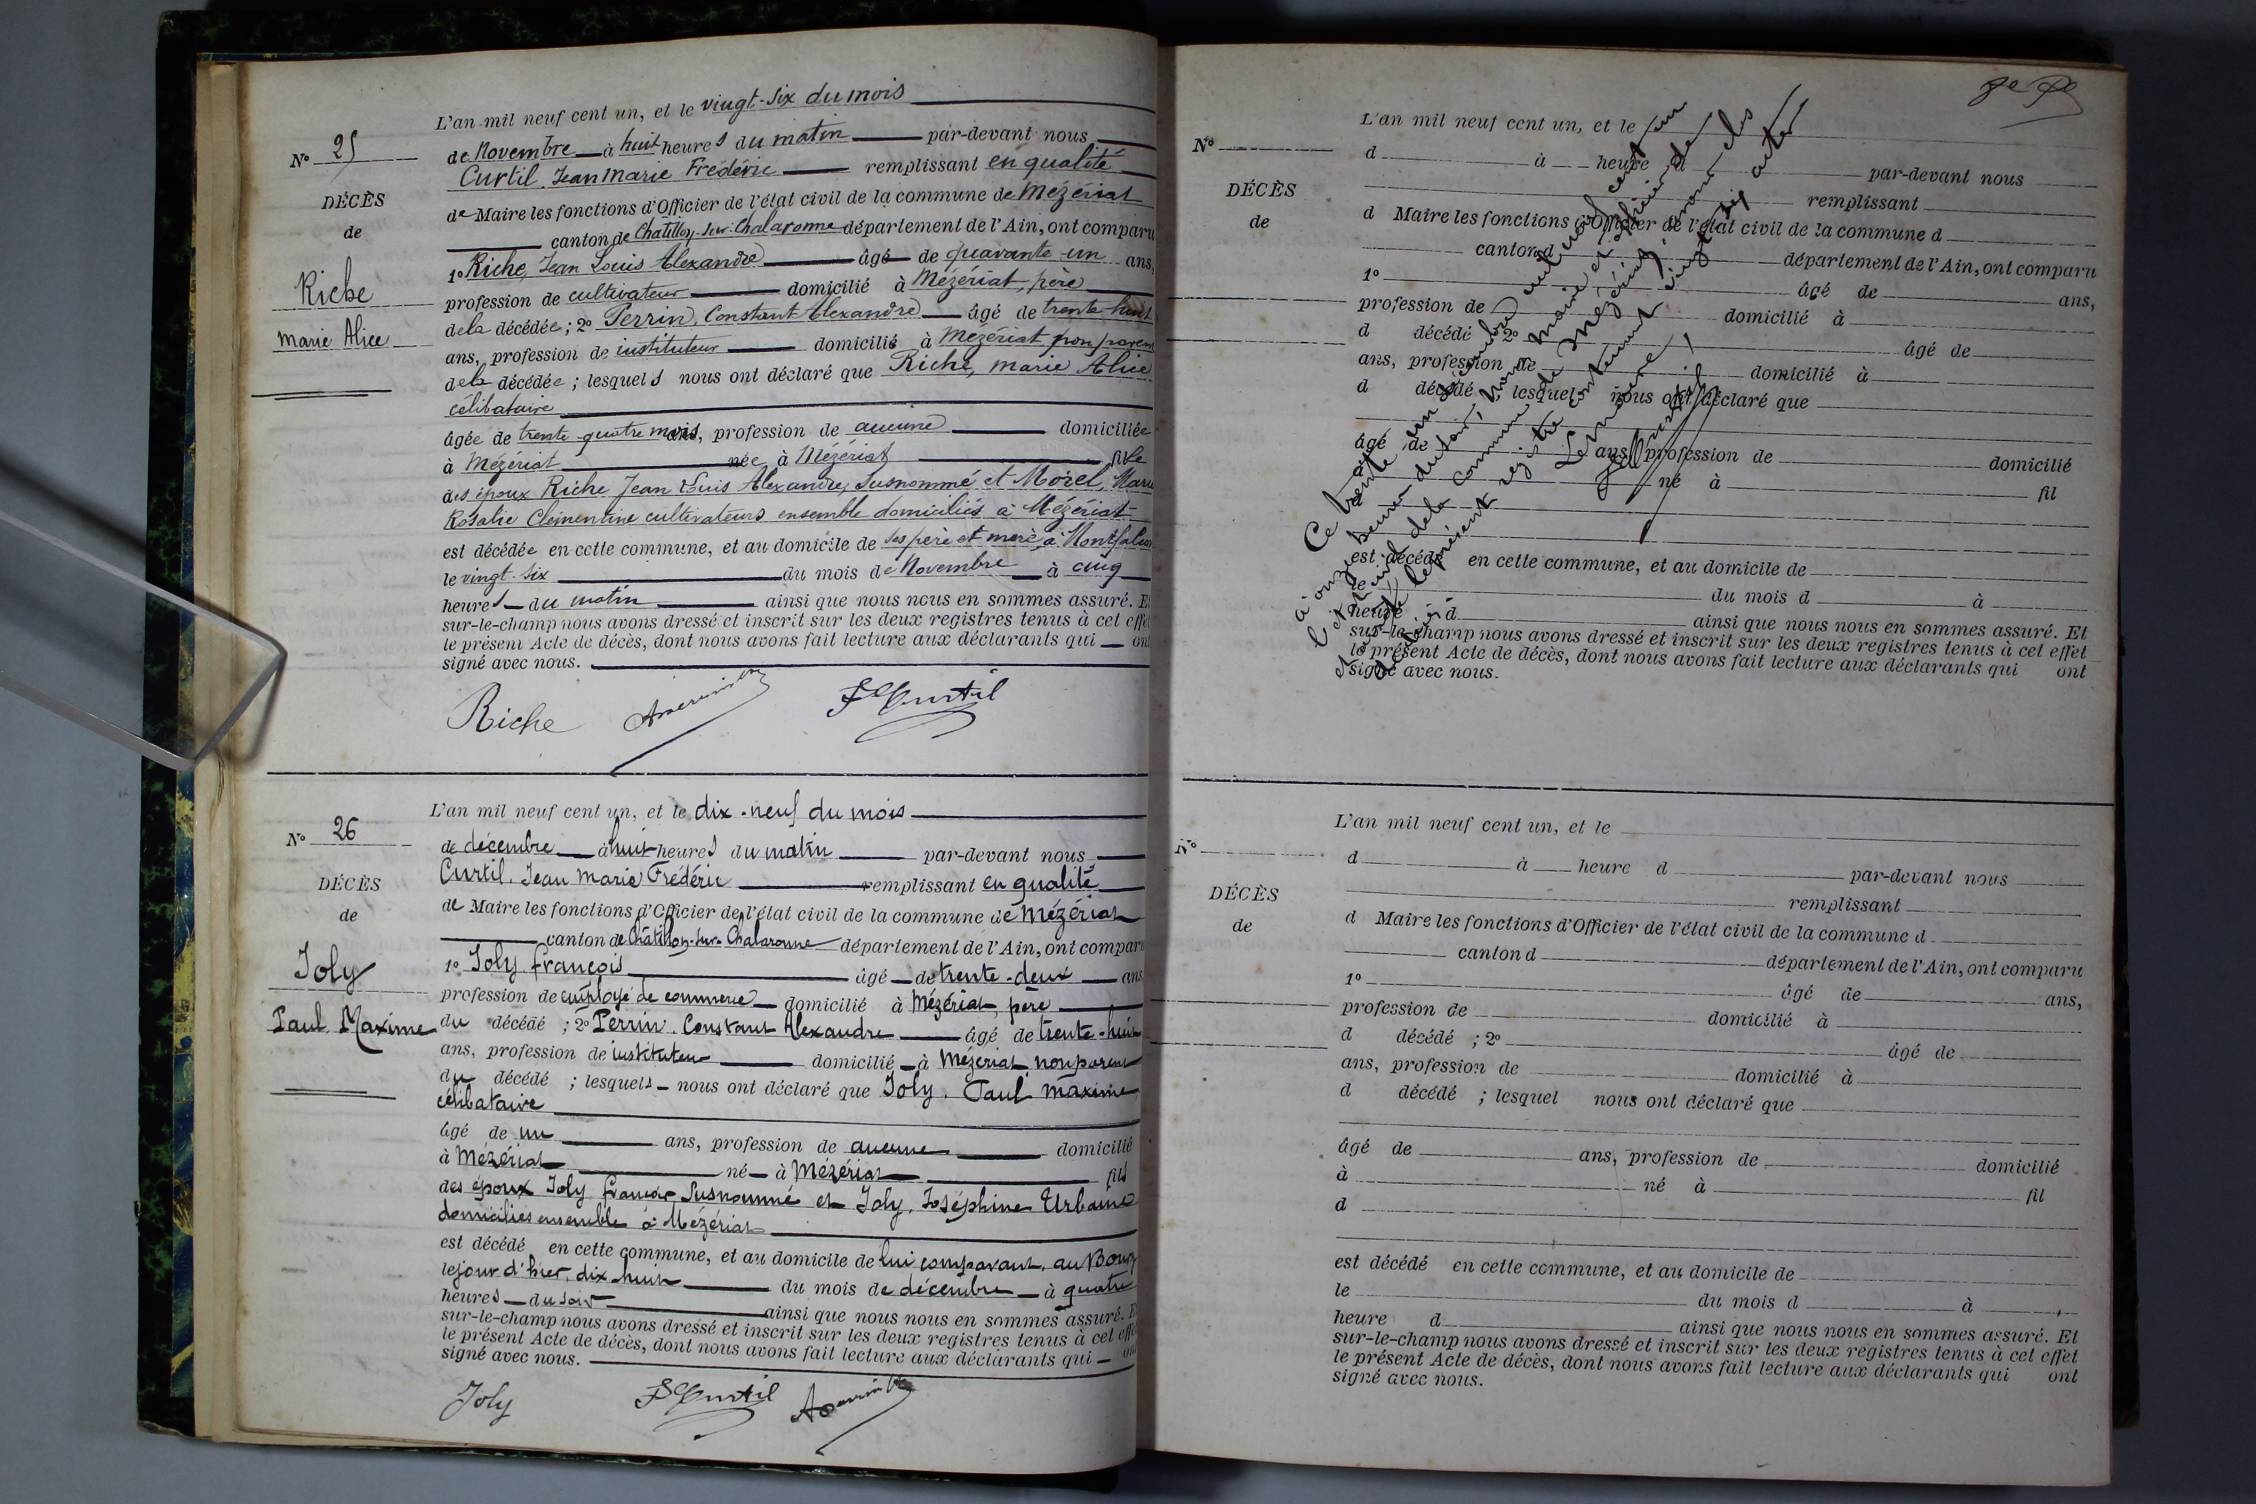 L'an mil neuf cent un, et le vingt-six du mois
N° 25
de Novembre à huit heures du matin par-devant nous
Curtil, Jean Marie Frédéric remplissant en qualité
DÉCÈS
de Maire les fonctions d'Officier de l'état civil de la commune de Mézériat
de
canton de Châtillon-sur-Chalaronne département de l'Ain, ont comparu
1° Riche, Jean Louis Alexandre âgé de quarante-un ans,
Riche
profession de cultivateur domicilié à Mézériat, père
de la décédée; 2° Perrin, Constant Alexandre âgé de trente-huit
Marie Alice
ans, profession de instituteur domicilié à Mézériat non parent
de la décédée; lesquels nous ont déclaré que Riche, Marie Alice
célibataire
âgée de trente-quatre mois, profession de aucune domiciliée
à Mézériat née à Mézériat fille
des époux Riche Jean Louis Alexandre, susnommé et Morel, Marie
Rosalie Clémentine cultivateurs ensemble domiciliés à Mézériat
est décédée en cette commune, et au domicile de ses père et mère, à
le vingt-six du mois de Novembre à cinq
heures du matin ainsi que nous nous en sommes assuré. Et
sur-le-champ nous avons dressé et inscrit sur les deux registres tenus à cet effet
le présent Acte de décès, dont nous avons fait lecture aux déclarants qui ont
signé avec nous.
Riche Curtil
L'an mil neuf cent un, et le dix-neuf du mois
N° 26
de décembre à huit heures du matin par-devant nous
Curtil, Jean Marie Frédéric remplissant en qualité
DÉCÈS
de Maire les fonctions d'Officier de l'état civil de la commune de Mézériat
de
canton de Châtillon-sur-Chalaronne département de l'Ain, ont comparu
Joly
1° Joly François âgé de trente-deux ans
profession de employé de commerce domicilié à Mézériat, père
Paul Maxime
du décédé; 2° Perrin, Constant Alexandre âgé de trente-huit
ans, profession de instituteur domicilié à Mézériat, non parent
du décédé; lesquels nous ont déclaré que Joly, Paul Maxime
célibataire
âgé de un ans, profession de aucune domicilié
à Mézériat né à Mézériat fils
des époux Joly François susnommé et Joly, Joséphine Urbaine
domiciliés ensemble à Mézériat
est décédé en cette commune, et au domicile de lui comparant, au Bourg
le jour d'hier, dix-huit du mois de décembre à quatre
heures du soir ainsi que nous nous en sommes assuré. Et
sur-le-champ nous avons dressé et inscrit sur les deux registres tenus à cet effet
le présent Acte de décès, dont nous avons fait lecture aux déclarants qui ont
signé avec nous.
Joly Curtil
L'an mil neuf cent un, et le
N°
d à heure d par-devant nous
DÉCÈS
remplissant
de
d Maire les fonctions d'Officier de l'état civil de la commune d
canton d département de l'Ain, ont comparu
1° âgé de ans,
profession de domicilié à
d décédé 2° âgé de
ans, profession de domicilié à
d décédé lesquel nous ont déclaré que
âgé de ans, profession de domicilié
né à fil
est décédé en cette commune, et au domicile de
le du mois d à
heure d ainsi que nous nous en sommes assuré. Et
sur-le-champ nous avons dressé et inscrit sur les deux registres tenus à cet effet
le présent Acte de décès, dont nous avons fait lecture aux déclarants qui ont
signé avec nous.
Ce trente un décembre mil neuf cent un
à onze heures du soir, nous maire et officier de
l'état civil de la commune de Mézériat, avons clos
et arrêté le présent registre contenant vingt six actes
de décès
Le maire
Curtil
L'an mil neuf cent un, et le
N°
d à heure d par-devant nous
DÉCÈS
remplissant
de
d Maire les fonctions d'Officier de l'état civil de la commune d
canton d département de l'Ain, ont comparu
1° âgé de ans,
profession de domicilié à
d décédé ; 2° âgé de
ans, profession de domicilié à
d décédé ; lesquel nous ont déclaré que
âgé de ans, profession de domicilié
à né à fil
d
est décédé en cette commune, et au domicile de
le du mois d à
heure d ainsi que nous nous en sommes assuré. Et
sur-le-champ nous avons dressé et inscrit sur les deux registres tenus à cet effet
le présent Acte de décès, dont nous avons fait lecture aux déclarants qui ont
signé avec nous.